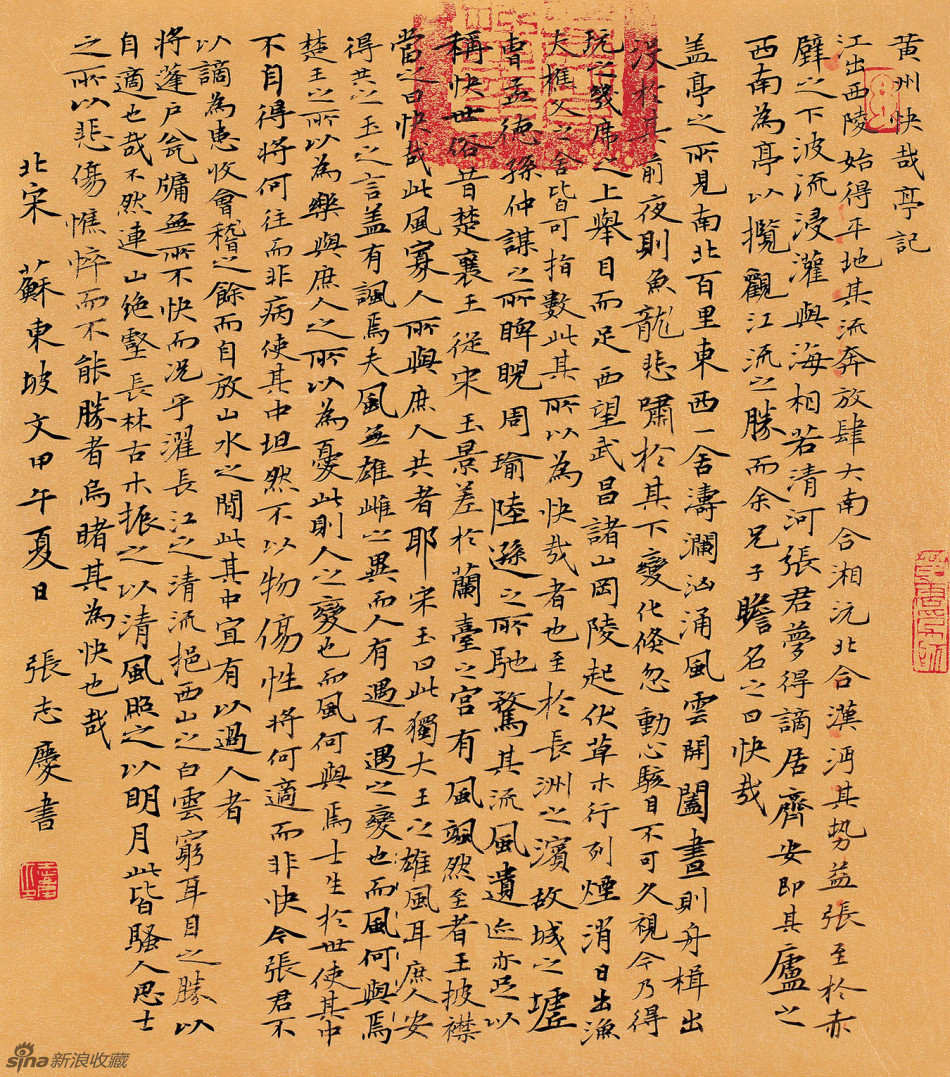 黄州快哉亭記
江出西陵始得平地其流奔放肆大南合湘沅北合漢沔其势益張至於赤
壁之下波流浸灌與海相若清河張君夢得謫居齊安即其廬之
西南為亭以攬觀江流之勝而余兄子瞻名之曰快哉
盖亭之所見南北百里東西一舍濤瀾汹涌風雲開闔晝則舟楫出
没於其前夜則魚龍悲嘯於其下變化倏忽動心駭目不可久視今乃得
玩之幾席之上舉目而足西望武昌諸山岡陵起伏草木行列煙消日出漁
夫樵父之舍皆可指數此其所以為快哉者也至於長洲之濱故城之墟
曹孟德孫仲謀之所睥睨周瑜陸遜之所馳騖其流風遺迹亦足以
稱快世俗昔楚襄王從宋玉景差於蘭臺之宮有風颯然至者王披襟
當之曰快哉此風寡人所與庶人共者耶宋玉曰此獨大王之雄風耳庶人安
得共之玉之言盖有諷焉夫風無雄雌之異而人有遇不遇之變也而風何與焉
楚王之所以為樂與庶人之所以為憂此則人之變也而風何與焉士生於世使其中
不自得將何往而非病使其中坦然不以物傷性將何適而非快今張君不
以謫為患收會稽之餘而自放山水之間此其中宜有以過人者
將蓬戶瓮牖無所不快而況乎濯長江之清流挹西山之白雲窮耳目之勝以
自適也哉不然連山絕壑長林古木振之以清風照之以明月此皆騷人思士
之所以悲傷憔悴而不能勝者烏睹其為快也哉
北宋 蘇東坡文甲午夏日 張志慶書
sina新浪收藏